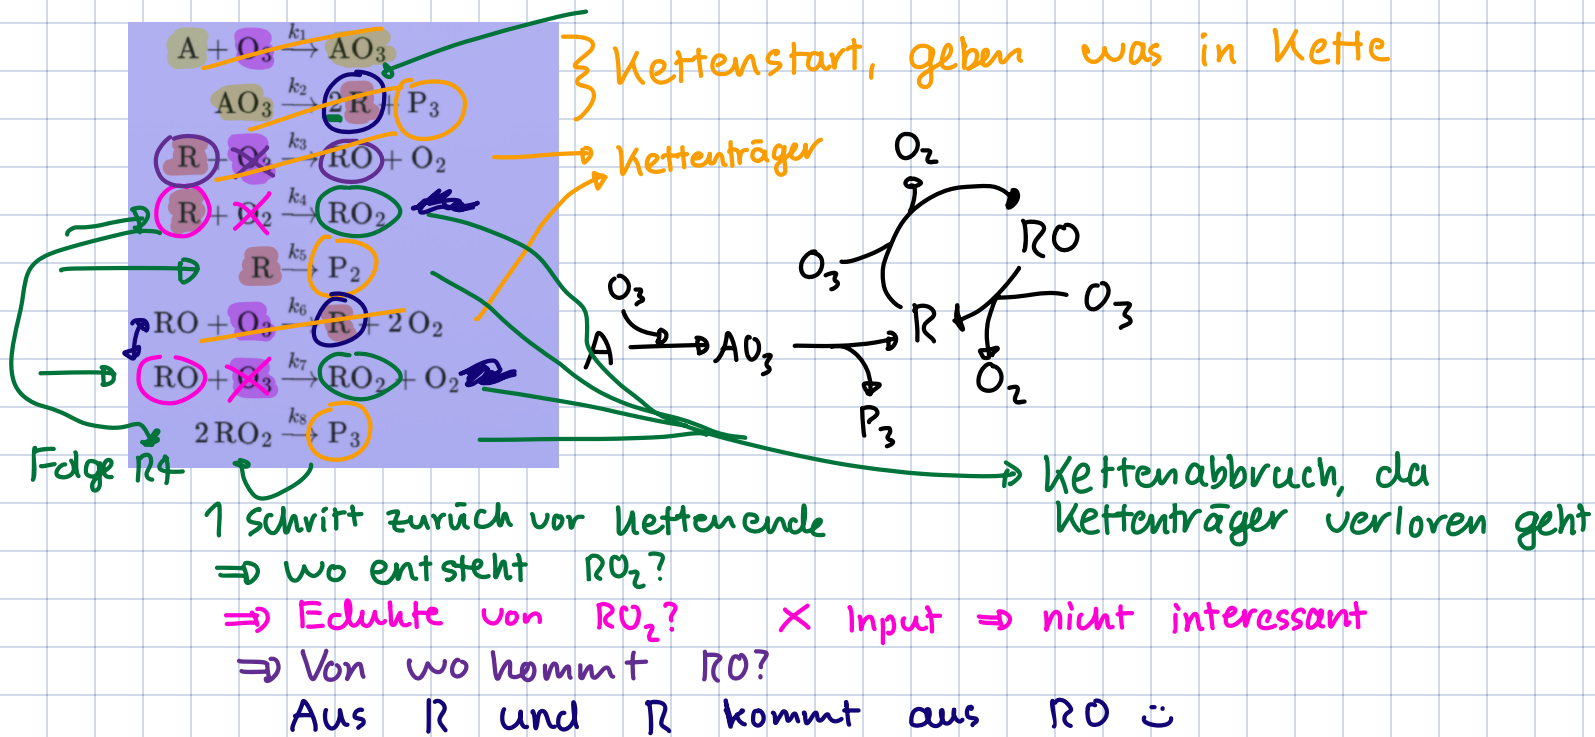 A + O₃ k₁→ AO₃
AO₃ k₂→ 2R + P₃
R + O₃ k₃→ RO + O₂
R + O₂ k₄→ RO₂
R k₅→ P₂
RO + O₃ k₆→ R + 2O₂
RO + O₃ k₇→ RO₂ + O₂
2RO₂ k₈→ P₃
Kettenstart, geben was in Kette
Kettenträger
O₂
RO
O₃
O₃
O₃
A → AO₃ → R
O₂
P₃
Kettenabbruch, da
Kettenträger verloren geht
Folge R4
1 schritt zurück vor Kettenende
⇒ wo entsteht RO₂?
⇒ Edukte von RO₂? × Input ⇒ nicht interessant
⇒ Von wo kommt RO?
Aus R und R kommt aus RO :)